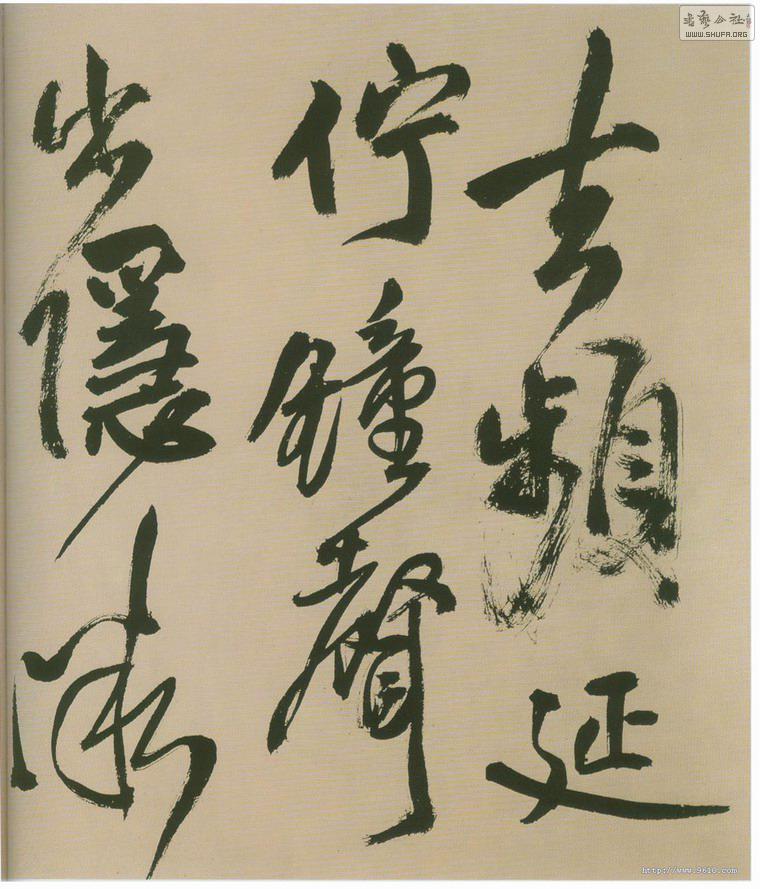 書藝公社
WWW.SHUFA.ORG
去頻延
佇鐘聲
出隱
http://www.9610.com